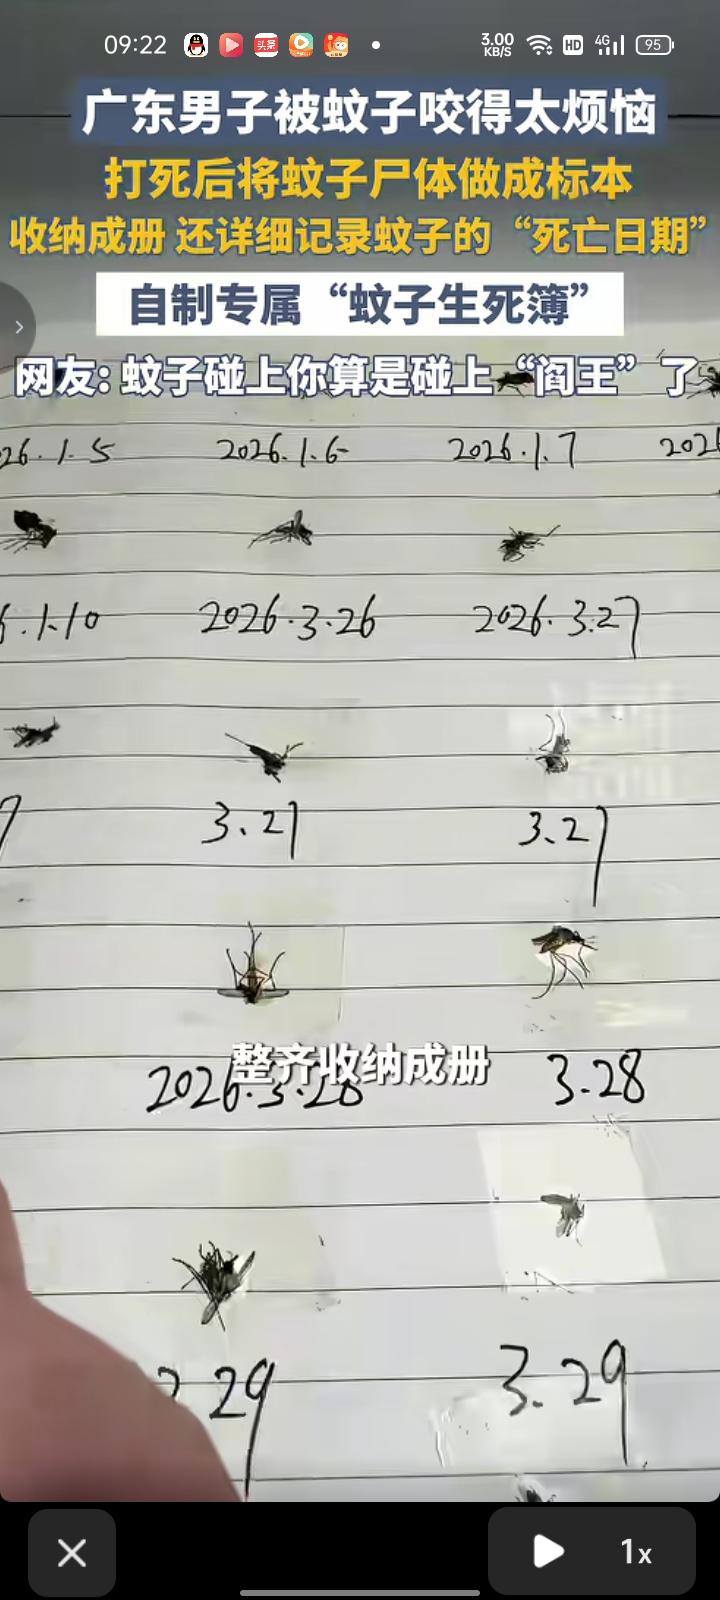 09:22
头条
3.00 KB/S HD 4G 95
广东男子被蚊子咬得太烦恼
打死后将蚊子尸体做成标本
收纳成册 还详细记录蚊子的“死亡日期”
自制专属“蚊子生死簿”
网友: 蚊子碰上你算是碰上“阎王”了
26.1.5 2026.1.6 2026.1.7 202
6.1.10 2026.3.26 2026.3.27
3.27 3.27
整齐收纳成册
2026.3.28 3.28
29 3.29
1x